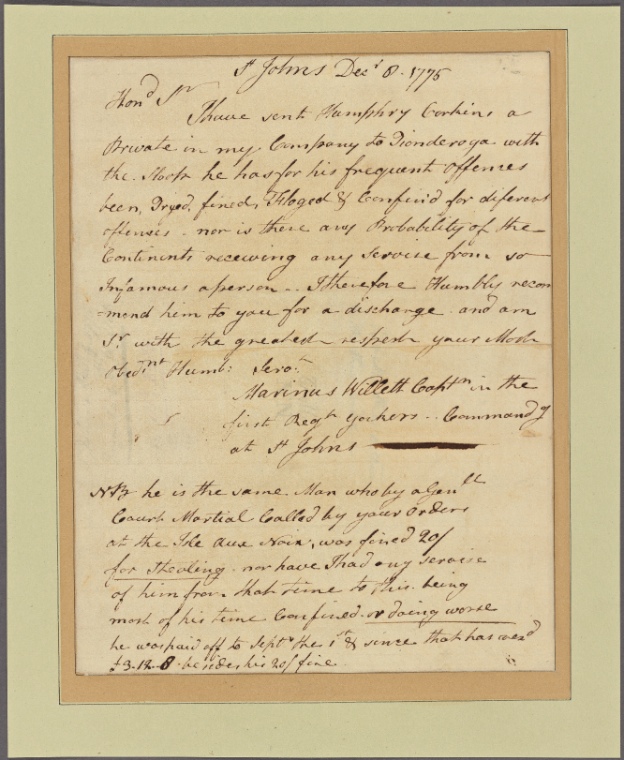 St Johns Decr 8. 1775
Hond Sr
I have sent Humphry Corkins a
Private in my Company to Tionderoga with
the he has for his frequent offences
been Tryed, fined, Floged & Confin'd for diferent
offenses - nor is there any Probability of the
Continents receiving any Servise from so
Infamous a person - I therefore Humbly recom
=mend him to you for a discharge - and am
Sr with the greatest respect your Most
Obednt Humb: Servt
Marinus Willett Captn in the
first Regt Yorkers - Commandg
at St Johns
NB he is the same Man who by a Genll
Court Martial Called by your Orders
at the Isle aux Noix, was fined 20/
for Theoling - nor have I had any servise
of him from that time to this being
most of his time Confined or doing worse
he was paid off to Septr the 1st & since that has
£3-12-8 besides his 20/ fine